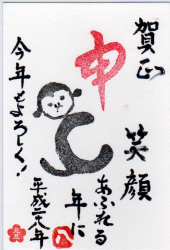 賀正
申
笑顔
あふれる
年に
今年もよろしく!
平成二八年